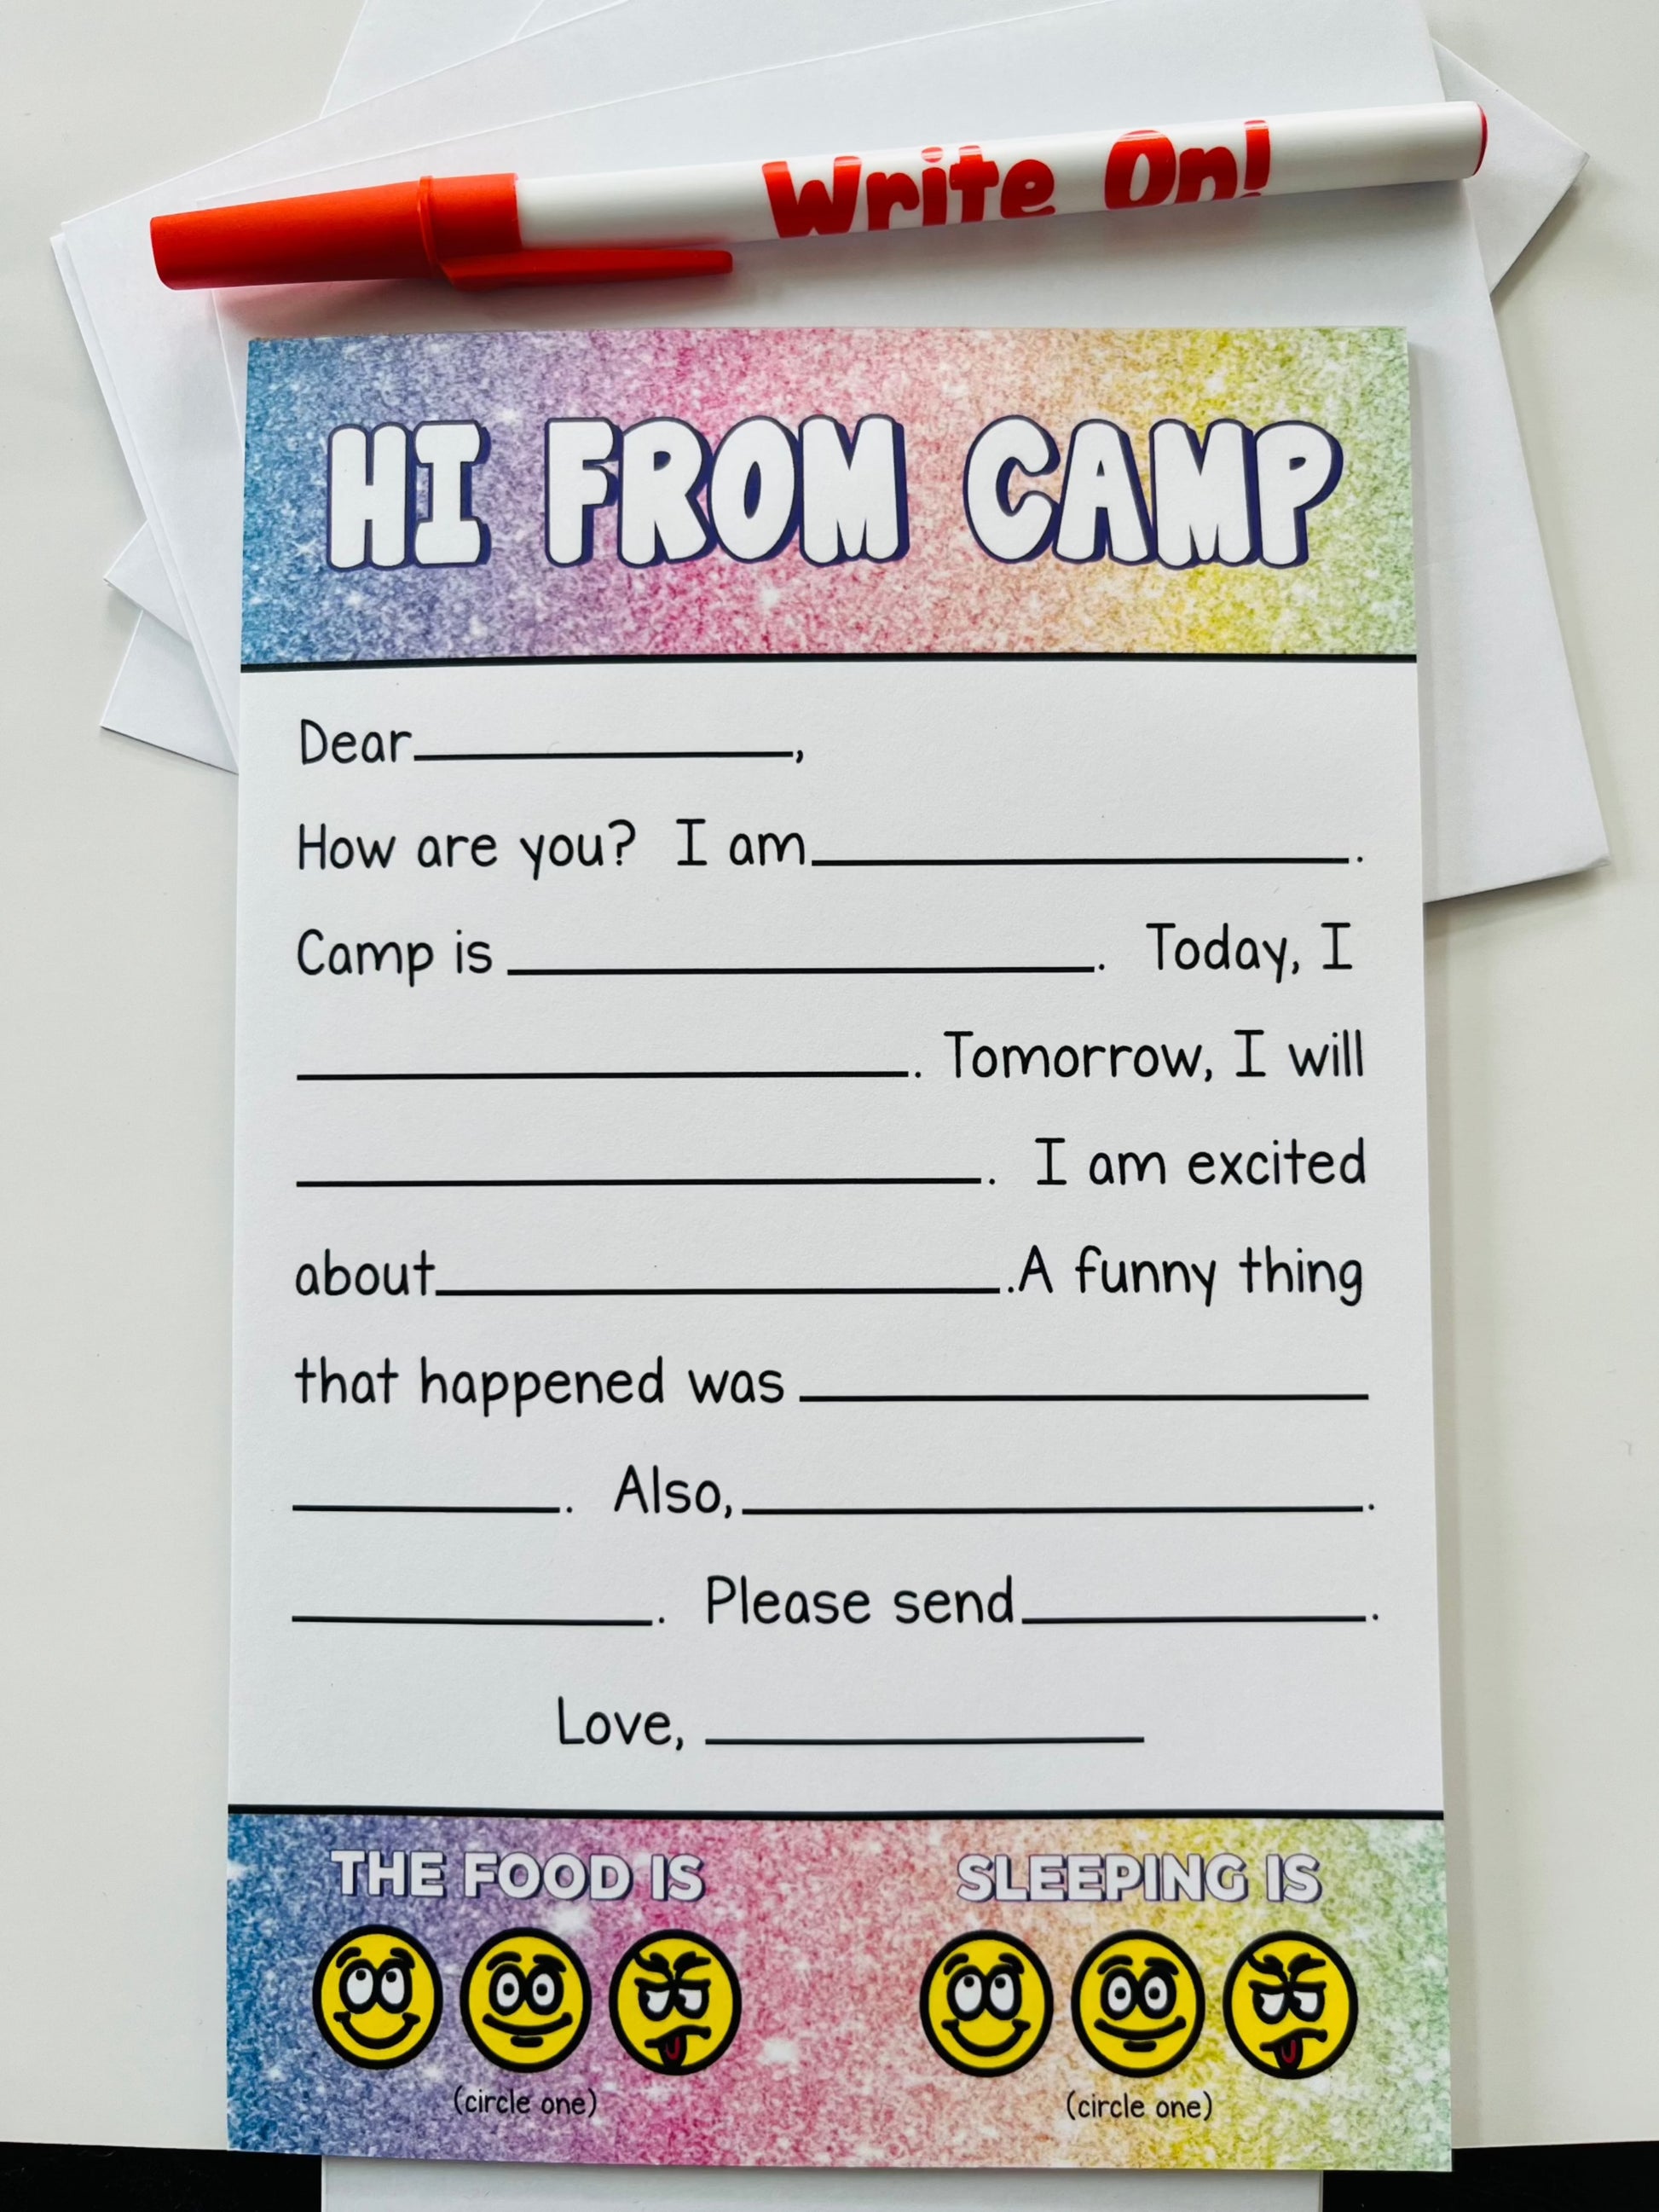 Write On!
HI FROM CAMP
Dear__________,
How are you?  I am__________.
Camp is __________.  Today, I
__________. Tomorrow, I will
__________.  I am excited
about__________.A funny thing
that happened was __________
__________.  Also,__________.
__________.  Please send__________.
Love, __________
THE FOOD IS
SLEEPING IS
(circle one)
(circle one)